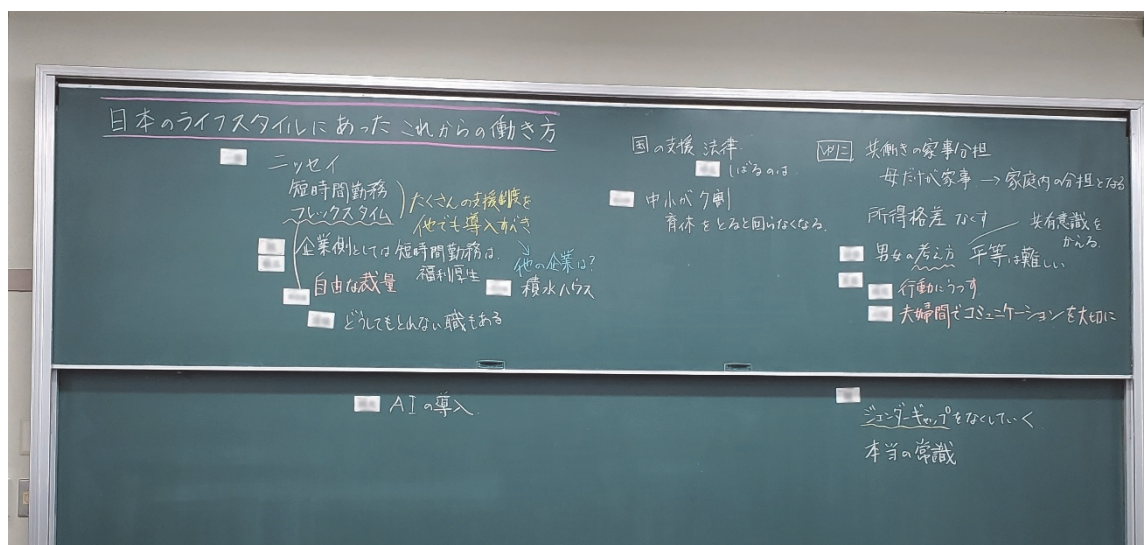 日本のライフスタイルにあったこれからの働き方
ニッセイ
短時間勤務
フレックスタイム
たくさんの支援制度を
他でも導入すべき
企業側としては短時間勤務は
福利厚生
他の企業は?
積水ハウス
自由な裁量
どうしてもとれない職もある
AIの導入
国の支援 法律
しばるのは
中小が夕割
育休をとると回らなくなる
共働きの家事分担
母だけが家事 → 家庭内の分担となる
所得格差なくす
共有意識を
かんがえる
男女の考え方 平等は難しい
行動にうつす
夫婦間でコミュニケーションを大切に
ジェンダーギャップをなくしていく
本当の常識